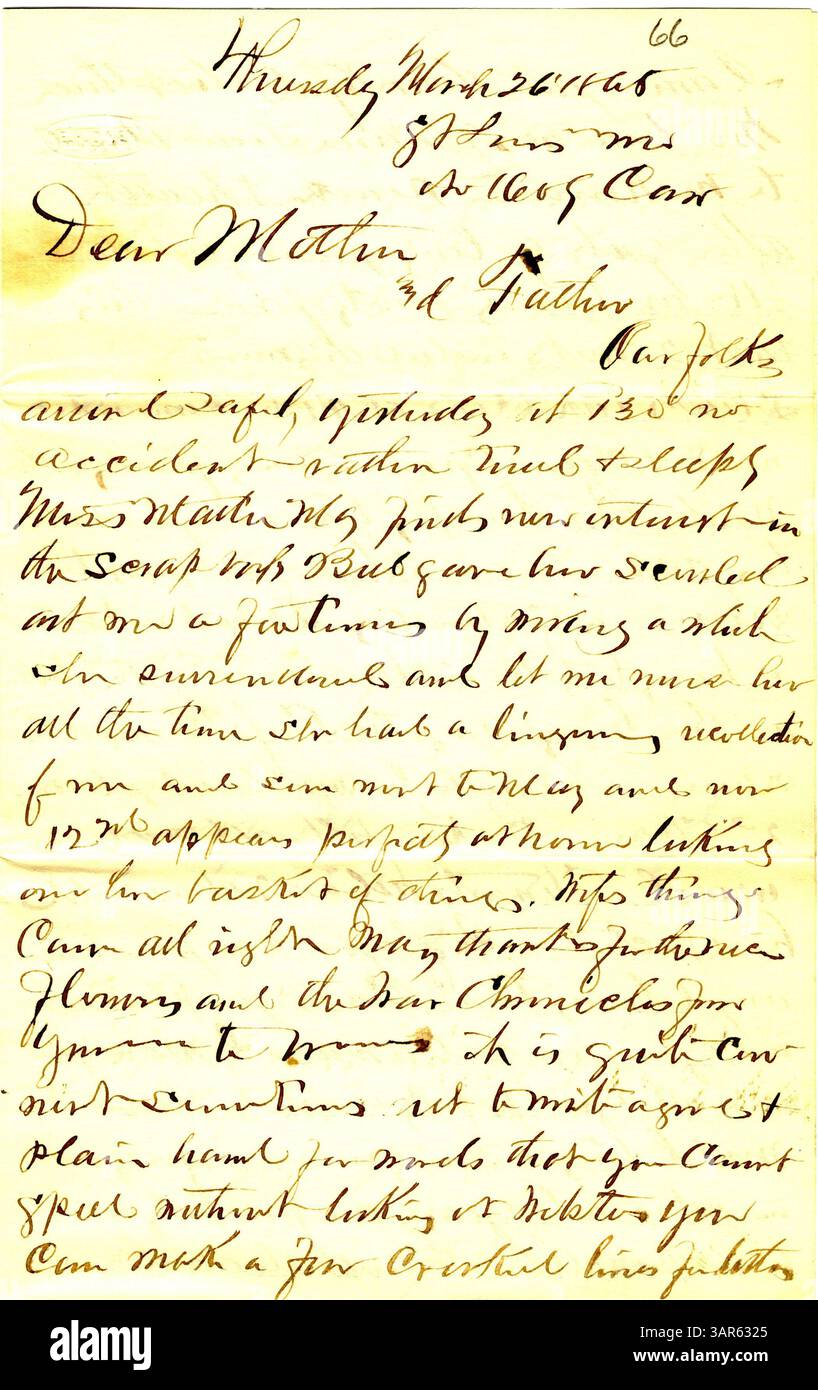 66
Thursday March 26 1868
St Louis Mo
No 1609 Carr
Dear Mother
nd Father
Our folks
arrived safely yesterday at 130 no
accident rather tired & sleepy
Miss Mattie May finds new interest in
the Scrap book Bub gave her scowled
at me a few times by a while
she surrendered and let me nurse her
all the time she had a lingering recollection
of me and and now
appears perfectly at home looking
over her basket of things. Wifes things
Came all right May thanks for the nice
flowers and the War Chronicles from
to it is quite con
nent sometimes not to write a good &
plain hand for words that you Cannot
spell without looking at Websters you
Can make a few Crooked lines for letters
alamy
Image ID: 3AR6325
www.alamy.com